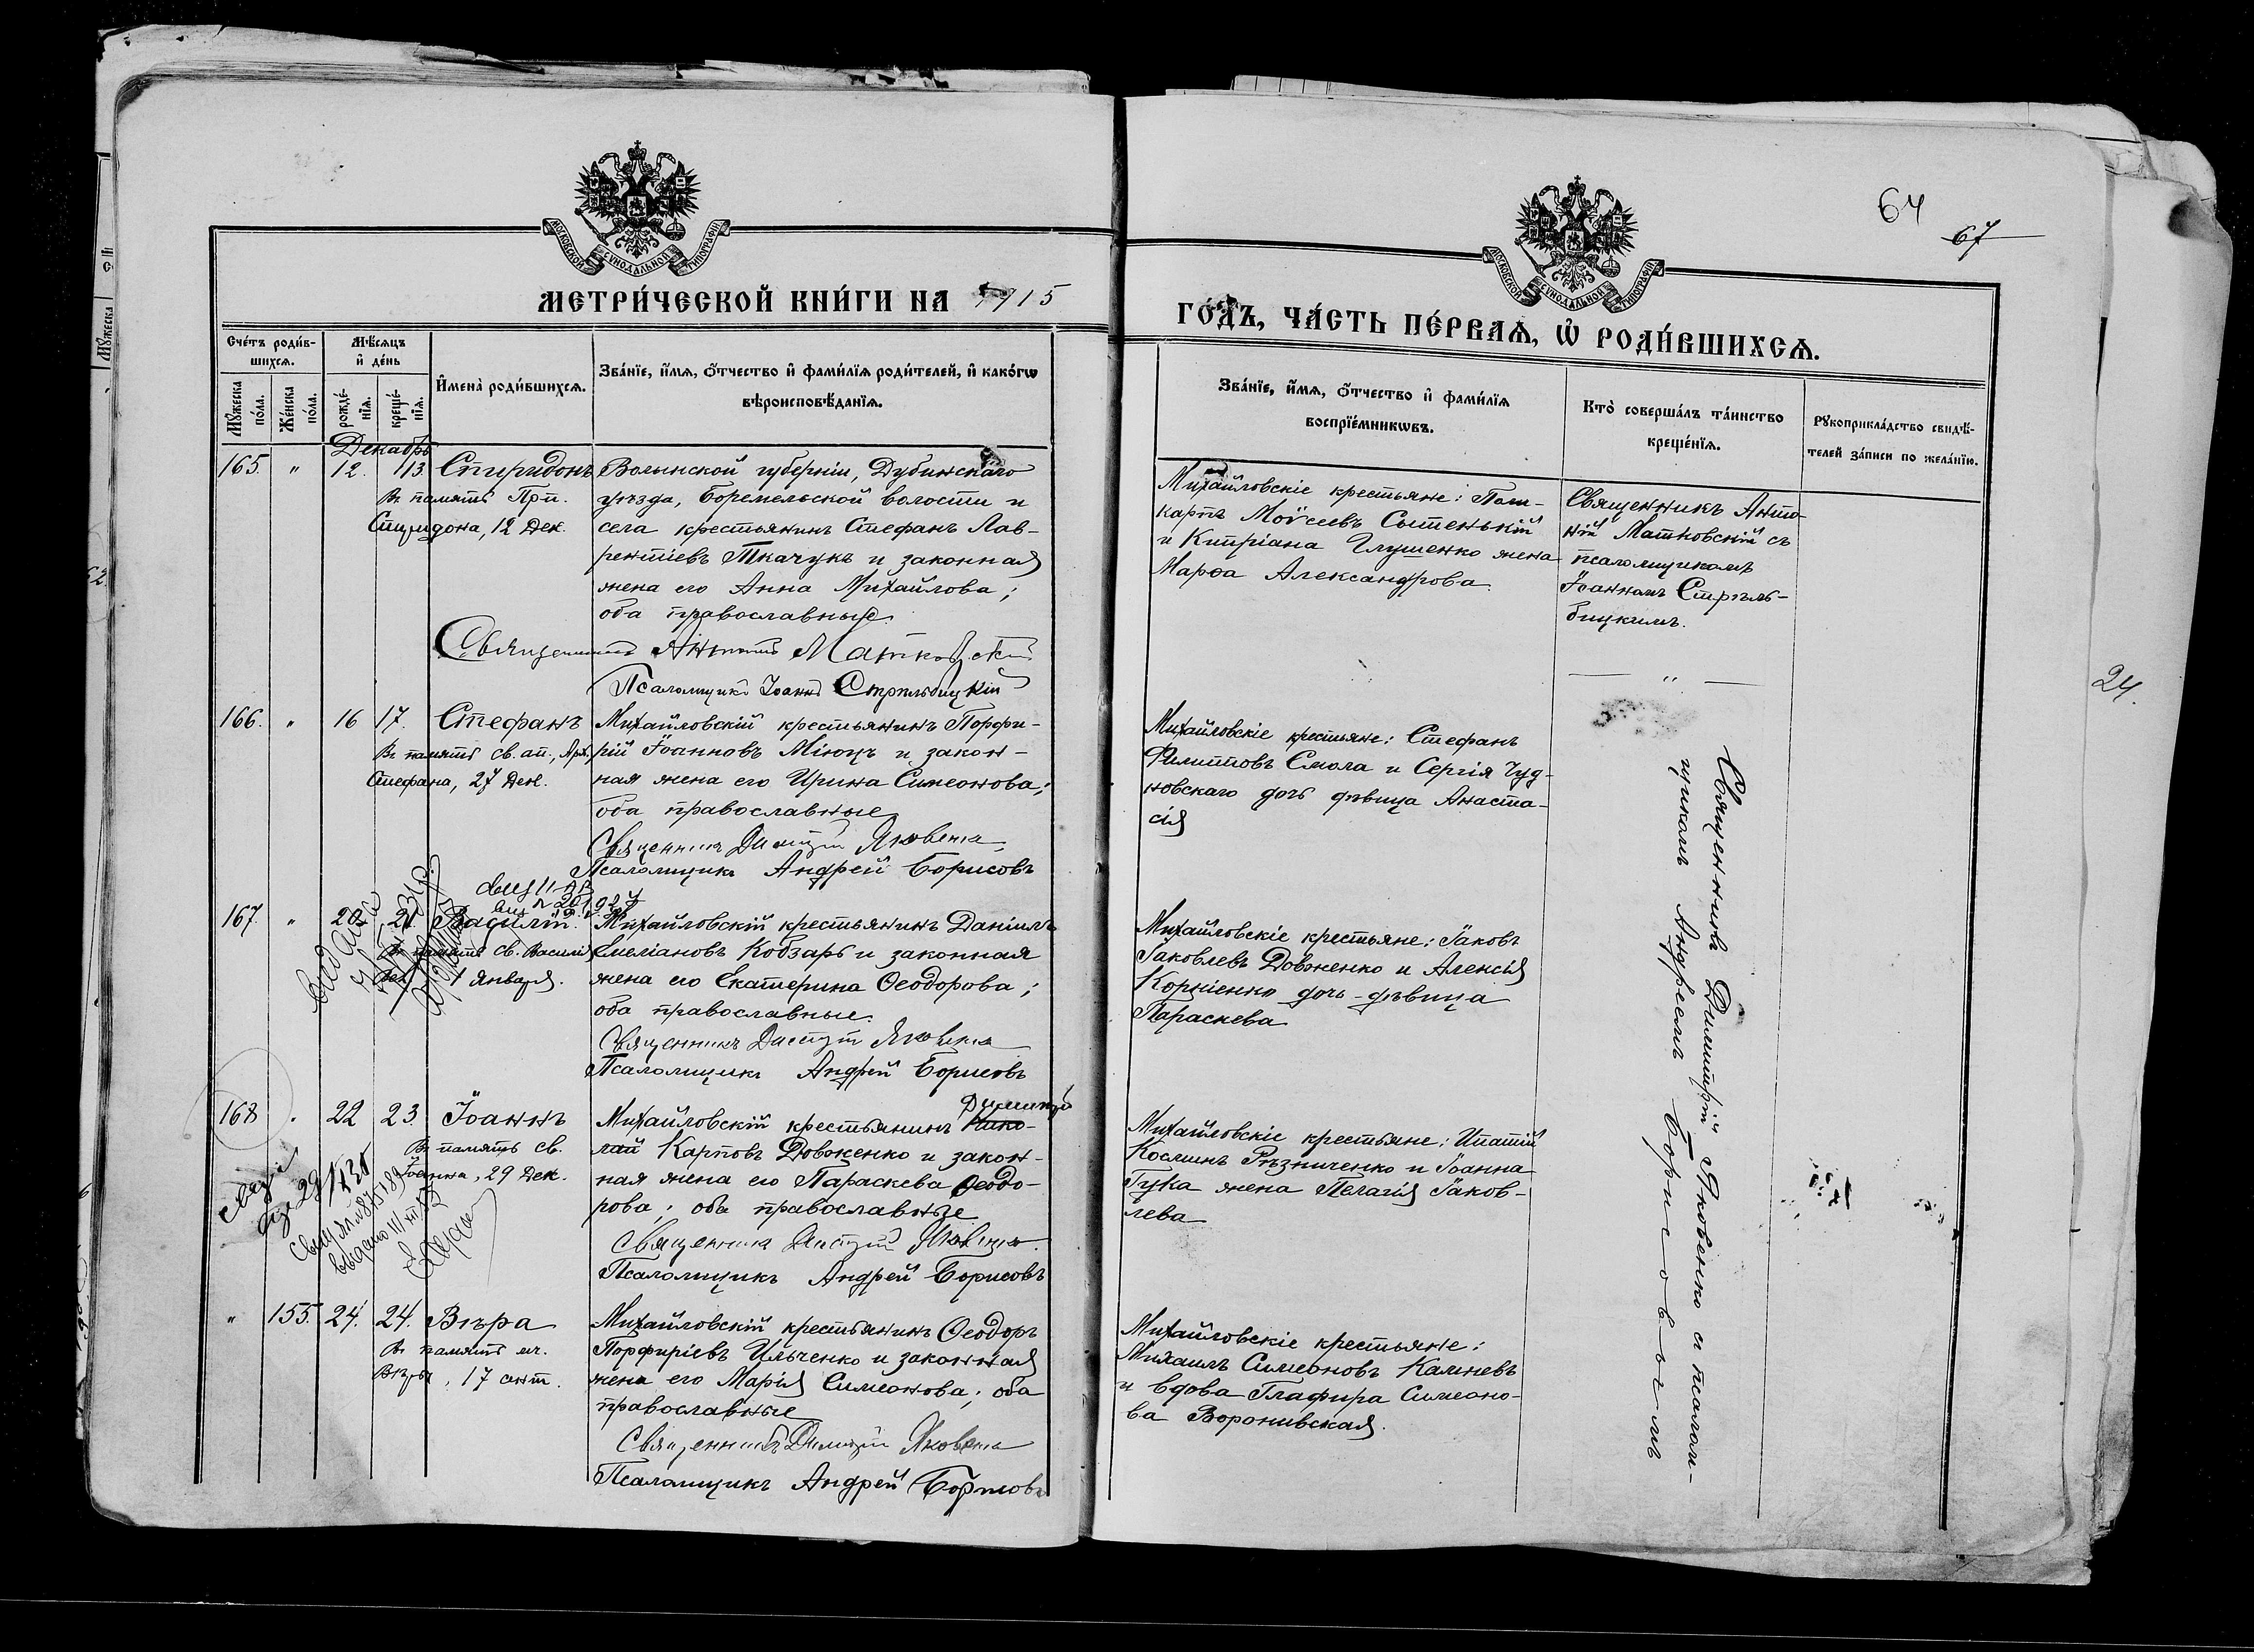 64
67
МОСКОВСКОЙ СѴНОДАЛЬНОЙ ТИПОГРАФІИ
МОСКОВСКОЙ СѴНОДАЛЬНОЙ ТИПОГРАФІИ
МЕТРИ́ЧЕСКОЙ КНИ́ГИ НА 1915
ГО́ДЪ, ЧА́СТЬ ПЕ́РВАѦ, Ѡ҆ РОДИ́ВШИХСѦ.
Сче́тъ роди́в-
шихсѧ.
Мꙋ́жеска по́ла.
Же́нска по́ла.
Мѣ́сѧцъ
и҆ де́нь
рожде́-
нїѧ.
креще́-
нїѧ.
И҆мена̀ роди́вшихсѧ.
Зва́нїе, и҆́мѧ, ѻ҆́тчество и҆ фами́лїѧ роди́телей, и҆ како́гѡ
вѣроисповѣ́данїѧ.
Зва́нїе, и҆́мѧ, ѻ҆́тчество и҆ фами́лїѧ
воспрїе́мникѡвъ.
Кто̀ соверша́лъ та́инство
креще́нїѧ.
Рꙋкоприкла́дство свидѣ́-
телей за́писи по жела́нїю.
Декабрь
165. " 12. 13 Спиридонъ
Въ память Прп.
Спиридона, 12 Дек.
Волынской губерніи, Дубинскаго
уѣзда, Боремельской волости и
села крестьянинъ Стефанъ Лав-
рентіевъ Ткачукъ и законная
жена его Анна Михайлова;
оба православные.
Священникъ Антоній Матковскій
Псаломщикъ Іоаннъ Стрѣльбицкій
Михайловскіе крестьяне: Поли-
карпъ Моѵсеевъ Сытенькій
и Кипріана Глушенко жена
Марѳа Александрова.
Священникъ Анто-
ній Матковскій съ
псаломщикомъ
Іоанномъ Стрѣль-
бицкимъ.
— " —
166. " 16 17. Стефанъ
Въ память св. ап., Арх.
Стефана, 27 Дек.
Михайловскій крестьянинъ Порфи-
рій Іоанновъ Міюцъ и закон-
ная жена его Ирина Симеонова;
оба православные
Священникъ Димитрій Яковенко
Псаломщикъ Андрей Борисовъ
Михайловскіе крестьяне: Стефанъ
Филипповъ Смола и Сергія Чуд-
новскаго дочь дѣвица Анаста-
сія
Священникъ Димитрій Яковенко съ псалом-
щикомъ Андреемъ Борисовымъ
167. " 20 21. Василій.
Въ память св. Василія
1 Января.
Михайловскій крестьянинъ Даніилъ
Емеліановъ Кобзарь и законная
жена его Екатерина Ѳеодорова;
оба православные.
Священникъ Димитрій Яковенко
Псаломщикъ Андрей Борисовъ
Михайловскіе крестьяне: Іаковъ
Іаковлевъ Довженко и Алексія
Корніенко дочь-дѣвица
Параскева
168 " 22 23. Іоаннъ
Въ память св.
Іоанна, 29 Дек.
Димитрій
Михайловскій крестьянинъ Нико-
лай Карповъ Довженко и закон-
ная жена его Параскева Ѳеодо-
рова; оба православные
Священникъ Димитрій Яковенко
Псаломщикъ Андрей Борисовъ
Михайловскіе крестьяне: Ипатій
Косминъ Рѣзниченко и Іоанна
Гука жена Пелагія Іаков-
лева
" 155. 24. 24. Вѣра
Въ память мч.
Вѣры, 17 сент.
Михайловскій крестьянинъ Ѳеодоръ
Порфиріевъ Ильченко и законная
жена его Марія Симеонова; оба
православные
Священникъ Димитрій Яковенко
Псаломщикъ Андрей Борисовъ
Михайловскіе крестьяне:
Михаилъ Симеоновъ Калневъ
и вдова Глафира Симеоно-
ва Воронивская.
24.